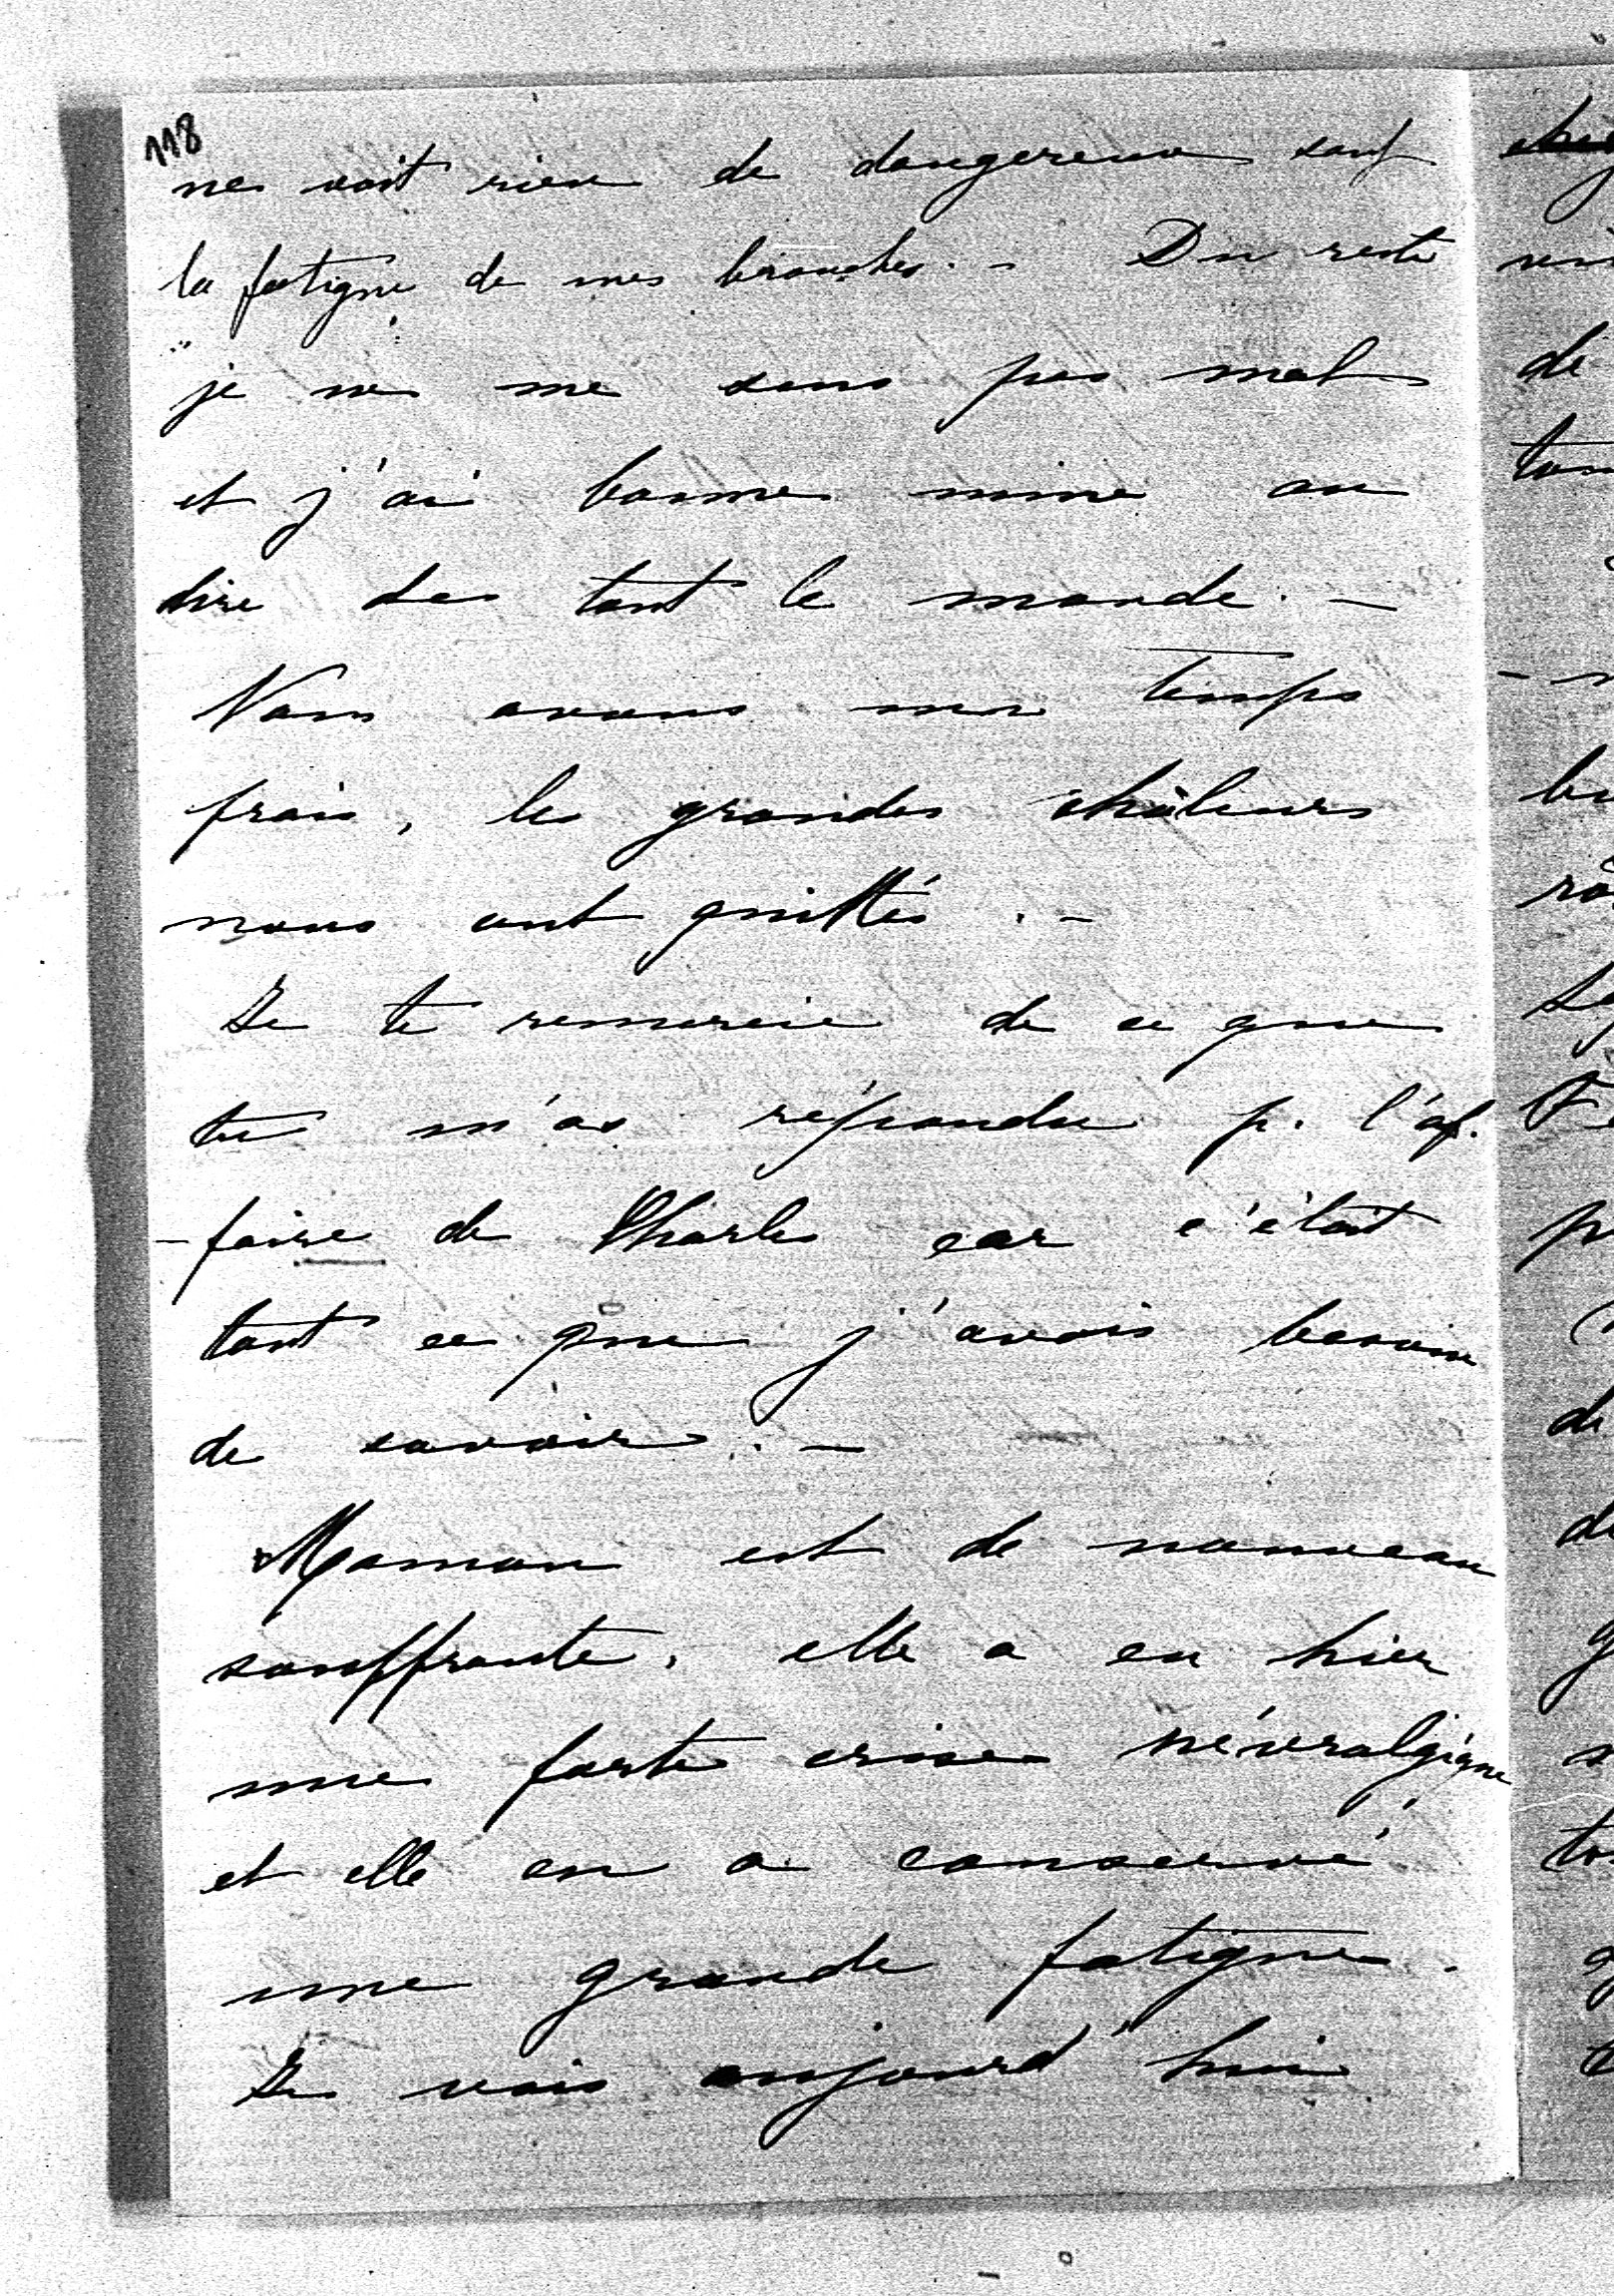 118
ne voit rien de dangereux sauf
la fatigue de mes bronches. - Du reste
je ne me sens pas mal
et j'ai bonne mine au
dire de tout le monde. -
Nous avons un temps
frais, les grandes chaleurs
nous ont quittés. -
Je te remercie de ce que
tu m'as répondu p. l'af.
- faire de Charles car c'était
tout ce que j'avais besoin
de savoir. -
Maman est de nouveau
souffrante, elle a eu hier
une forte crise névralgique
et elle en a conservé
une grande fatigue.
Je vais aujourd'hui